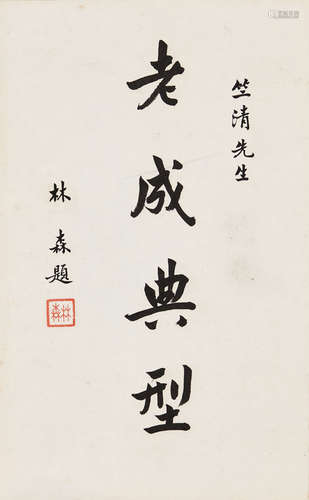 竺清先生
老成典型
林森題
林森